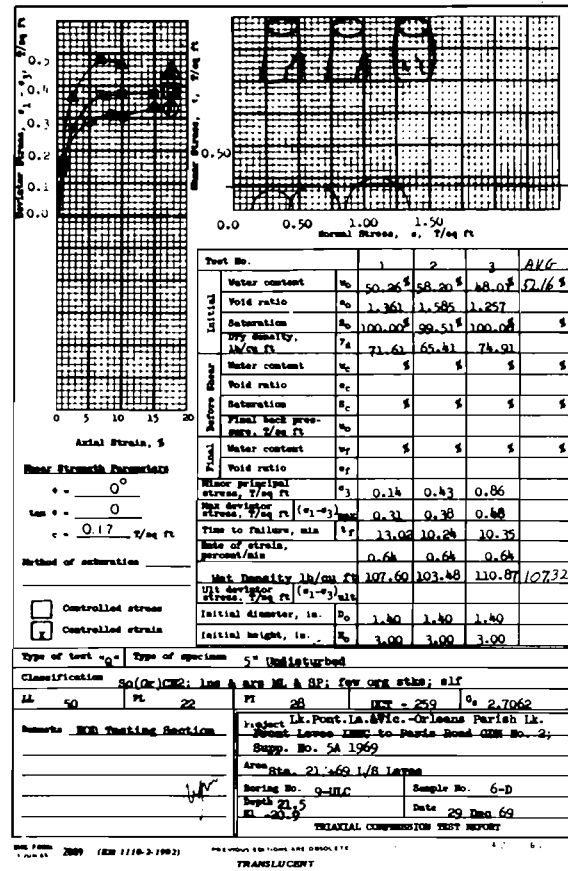 Deviator Stress, σ1 - σ3, T/sq ft
0.5
0.4
0.3
0.2
0.1
0.0
0 5 10 15 20
Axial Strain, %
Shear Stress, τ, T/sq ft
0.50
0.0 0.50 1.00 1.50
Normal Stress, σ, T/sq ft
Shear Strength Parameters
φ = 0°
tan φ = 0
c = 0.17 T/sq ft
Method of saturation
Controlled stress
x Controlled strain
Test No. 1 2 3 AVG
Initial
Water content w0 50.26% 58.20% 48.01% 52.16%
Void ratio e0 1.361 1.585 1.257
Saturation S0 100.00% 99.51% 100.00%
Dry density, lb/cu ft γd 71.61 65.41 74.91
Before Shear
Water content wc % % % %
Void ratio ec
Saturation Sc % % % %
Final back pressure, T/sq ft u0
Final
Water content wf % % % %
Void ratio ef
Minor principal stress, T/sq ft σ3 0.14 0.43 0.86
Max deviator stress, T/sq ft (σ1-σ3)max 0.31 0.38 0.48
Time to failure, min tf 13.02 10.24 10.35
Rate of strain, percent/min 0.64 0.64 0.64
Wet Density lb/cu ft 107.60 103.48 110.87 107.32
Ult deviator stress, T/sq ft (σ1-σ3)ult
Initial diameter, in. D0 1.40 1.40 1.40
Initial height, in. H0 3.00 3.00 3.00
Type of test "Q" Type of specimen 5" Undisturbed
Classification So(Gr)CH2; lns & ars ML & SP; few org stks; slf
LL 50 PL 22 PI 28 UCT - 259 Gs 2.7062
Remarks NOD Testing Section
Project Lk.Pont.La.&Vic.-Orleans Parish Lk.
Front Levee IHNC to Paris Road GDM No. 2;
Supp. No. 5A 1969
Area Sta. 21+69 L/S Levee
Boring No. 9-ULC Sample No. 6-D
Depth 21.5
El -20.9 Date 29 Dec 69
TRIAXIAL COMPRESSION TEST REPORT
2089 (EM 1110-2-1902) PREVIOUS EDITIONS ARE OBSOLETE
TRANSLUCENT